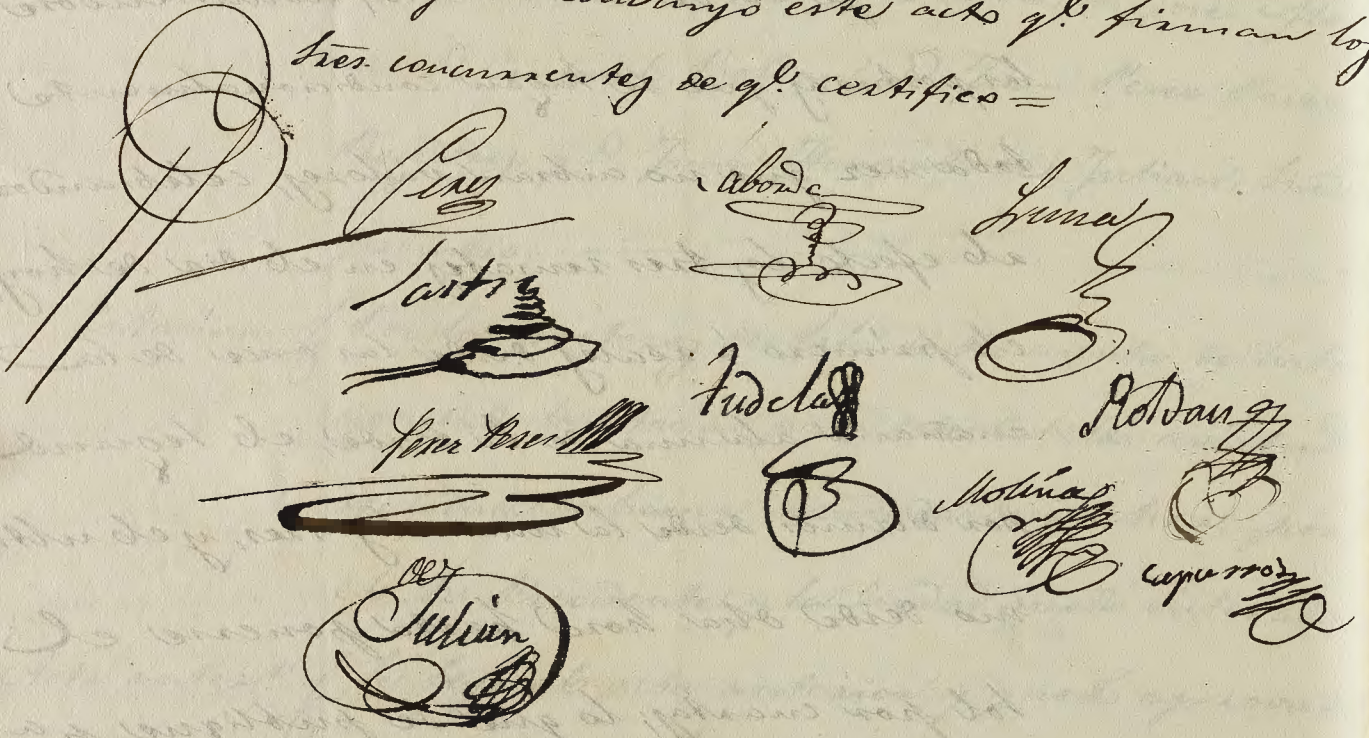 este acto q.ᵉ firman los
tres concurrentes de q.ᵉ certifico =
Perez
Laborda
Luna
Lastra
Tudela
Roldan
Perez Perez
Molina
Caparros
Julian